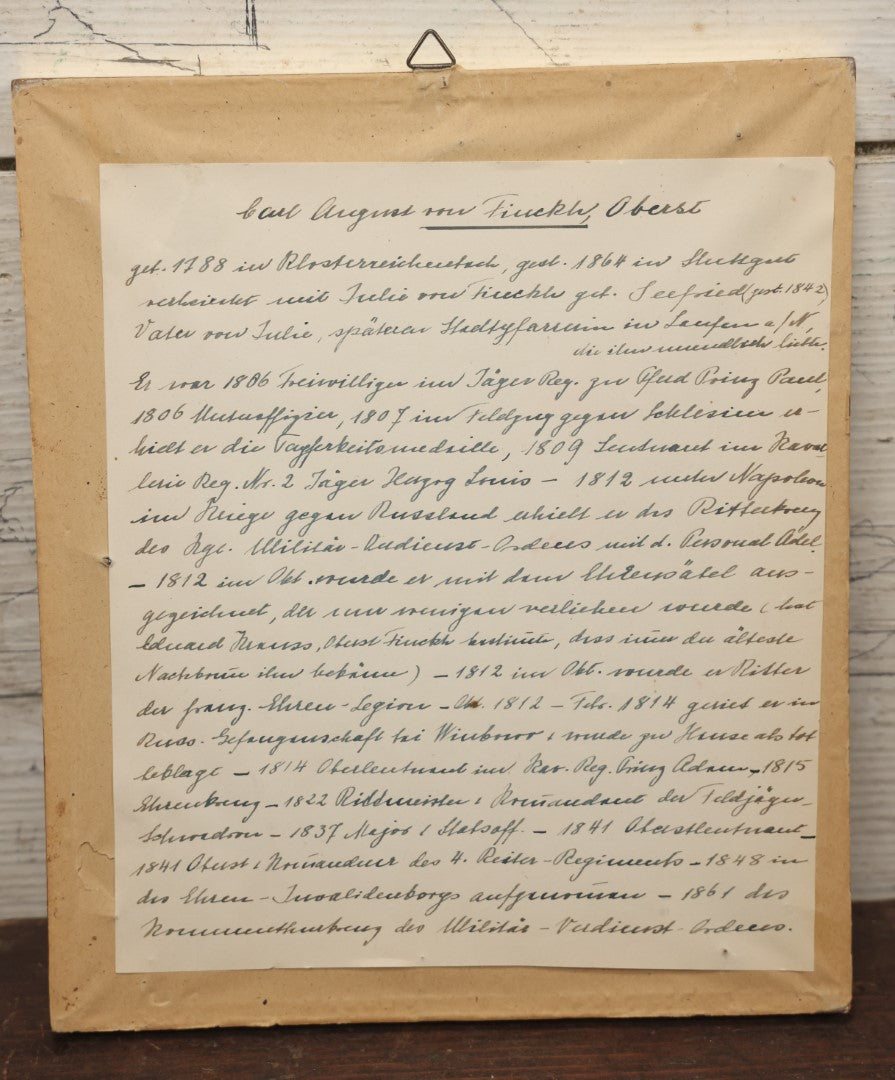 Carl August von Finckh, Oberst
geb. 1788 in Klosterreichenbach, gest. 1864 in Stuttgart
verheiratet mit Julie von Finckh geb. Seefried (gest. 1842),
Vater von Julie, späteren Stadtpfarrerin in Laufen a/N,
die ihn unendlich liebte.
Er war 1806 Freiwilliger im Jäger Reg. zu Pferd Prinz Paul,
1806 Unteroffizier, 1807 im Feldzug gegen Schlesien er-
hielt er die Tapferkeitsmedaille, 1809 Leutnant im Kaval-
lerie Reg. Nr. 2 Jäger Herzog Louis – 1812 unter Napoleon
im Kriege gegen Russland erhielt er das Ritterkreuz
des Kgl. Militär-Verdienst-Ordens mit d. Personal Adel.
– 1812 im Okt. wurde er mit dem Ehrensäbel aus-
gezeichnet, der nur wenigen verliehen wurde (hat
Eduard Krauss, Oberst Finckh bestimmt, dass immer der älteste
ihn bekäme) – 1812 im Okt. wurde er Ritter
der franz. Ehren-Legion – Okt. 1812 – Febr. 1814 geriet er in
Russ. Gefangenschaft bei Winkowo & wurde zu Hause als tot
beklagt – 1814 Oberleutnant im Kav. Reg. Prinz Adam – 1815
Ehrenkreuz – 1822 Rittmeister & Komandant der Feldjäger-
Schwadron – 1837 Major & Stabsoff. – 1841 Oberstleutnant –
1841 Oberst & Komandeur des 4. Reiter-Regiments – 1848 in
das Ehren-Invalidenkorps aufgenomen – 1861 das
Kommenthurkreuz des Militär-Verdienst-Ordens.